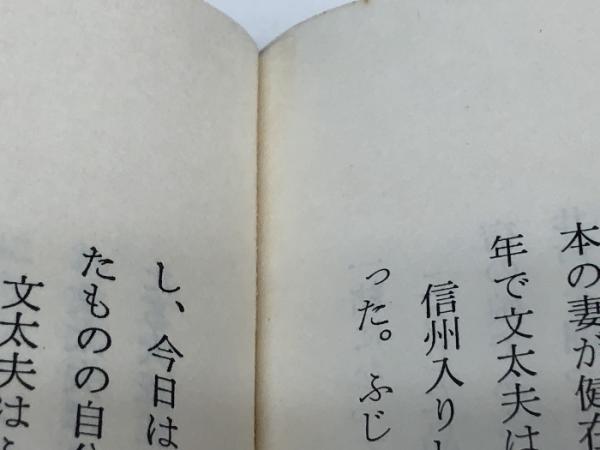 本の妻が健在
年で文太夫は
信州入りし
った。ふじ
し、今日は
たものの自分
文太夫は